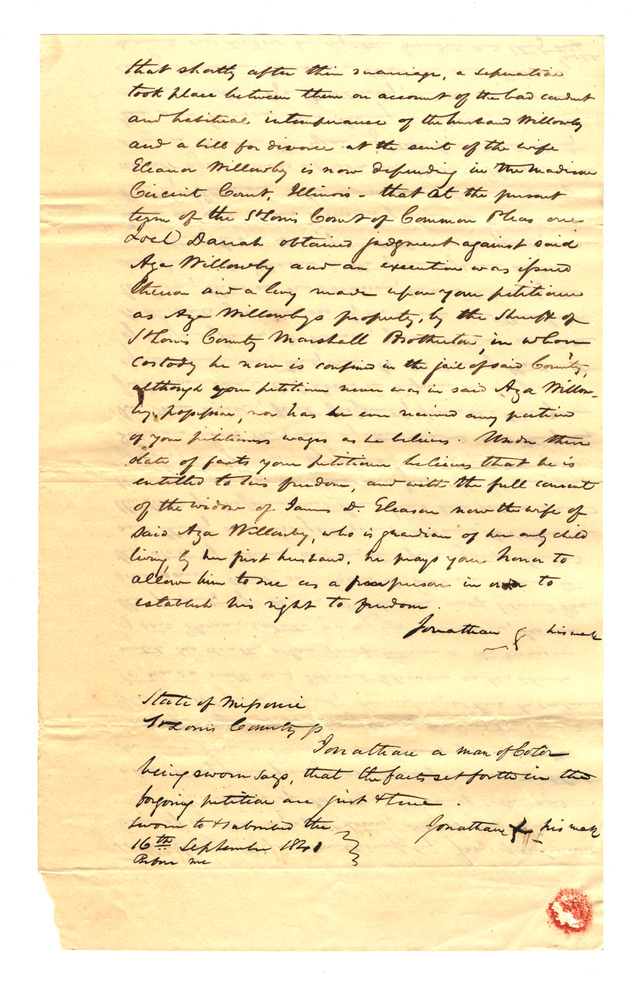 that shortly after their marriage, a seperation
took place between them on account of the bad conduct
and habitual intemperance of the husband Willowby
and a bill for divorce at the suit of the wife
Eleanor Willowby is now depending in the Madison
Circuit Court, Illinois - that at the present
term of the St Louis Court of Common Pleas one
Joel Danah obtained judgment against said
Aza Willowby and an execution was issued
thereon and a levy made upon your petitioner
as Aza Willowbys property, by the Sheriff of
St Louis County Marshall Brotherton, in whose
custody he now is confined in the jail of said County,
although your petitioner never was in said Aza Willow-
by, possession, nor has he ever received any portion
of your petitioners wages as he believes. Under this
state of facts your petitioner believes that he is
entitled to his freedom, and with the full consent
of the widow of James D. Eleason now the wife of
said Aza Willowby, who is guardian of her only child
living, by her first husband, he prays your honor to
allow him to sue as a poor person in order to
establish his right to freedom.
Jonathan his mark
State of Missouri
St Louis County ss
Jonathan a man of Color
being sworn says, that the facts set forth in the
forgoing petition are just & true.
sworn to & subscribed the
Jonathan his mark
16th September 1841
Before me